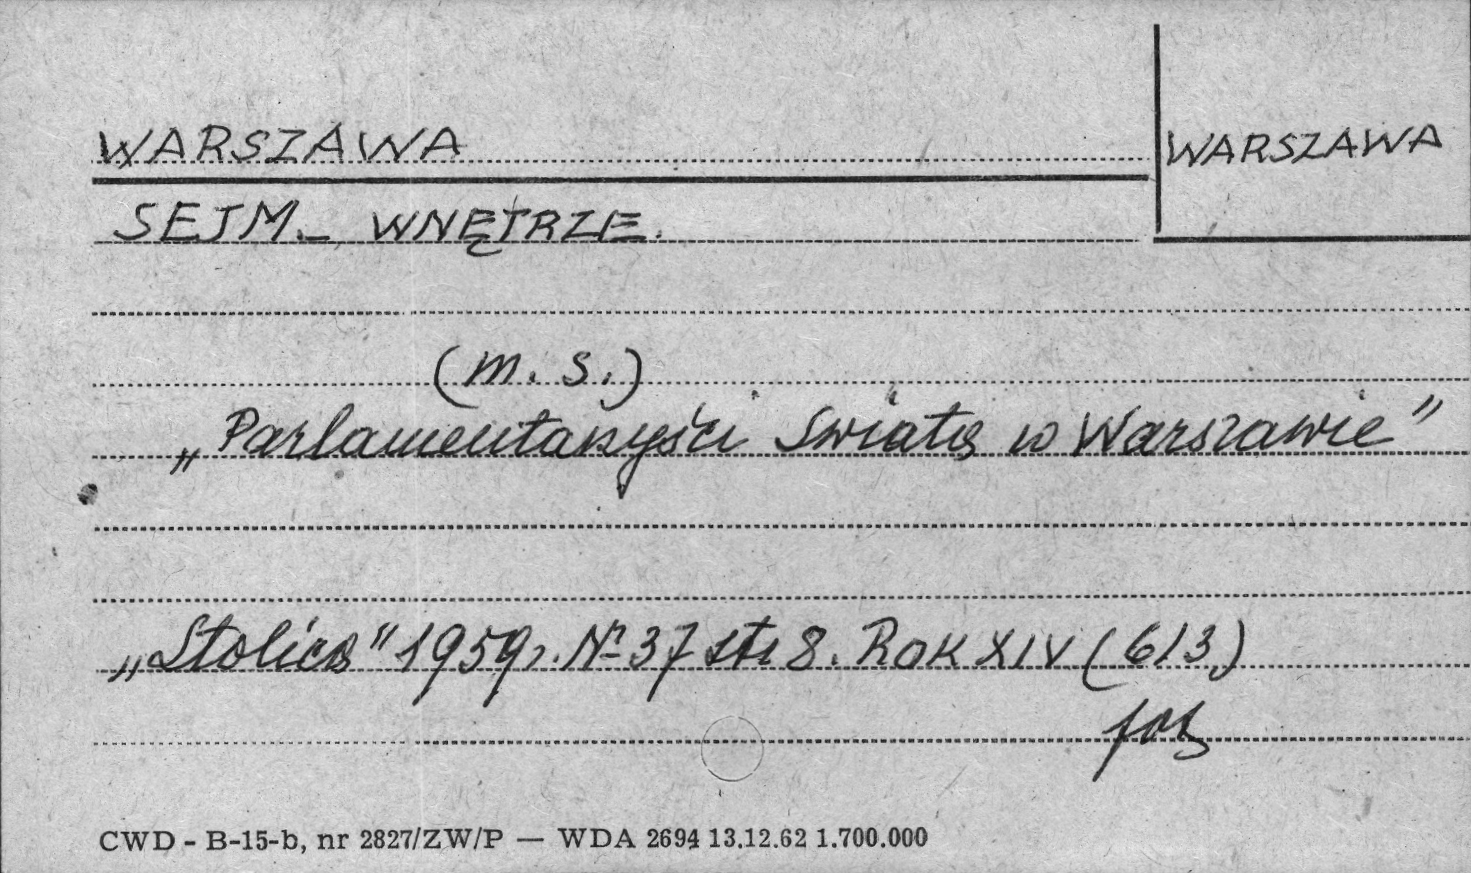 WARSZAWA
WARSZAWA
SEJM. – WNĘTRZE.
(m. s.)
„Parlamentarzyści Świata w Warszawie”
„Stolica” 1959 r. Nr 37 str 8. Rok XIV (613)
fot
CWD - B-15-b, nr 2827/ZW/P — WDA 2694 13.12.62 1.700.000